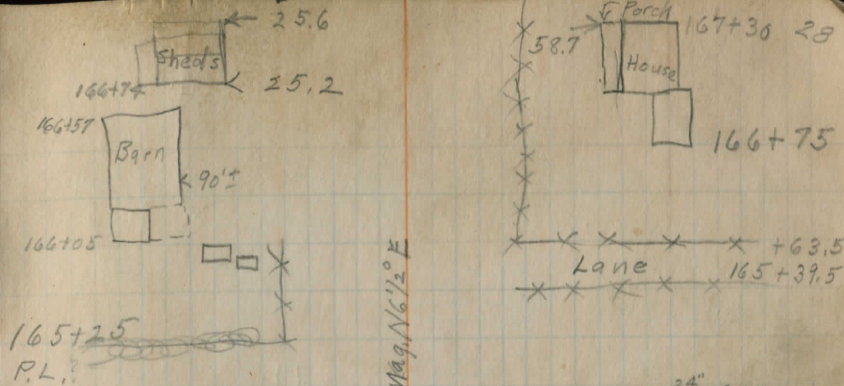 25.6
Sheds
25.2
166+74
166+57
Barn
90'±
166+05
165+25
P.L.
Mag. N6½° E
Porch
58.7
167+30 28
House
166+75
+63.5
Lane
165+39.5
24"